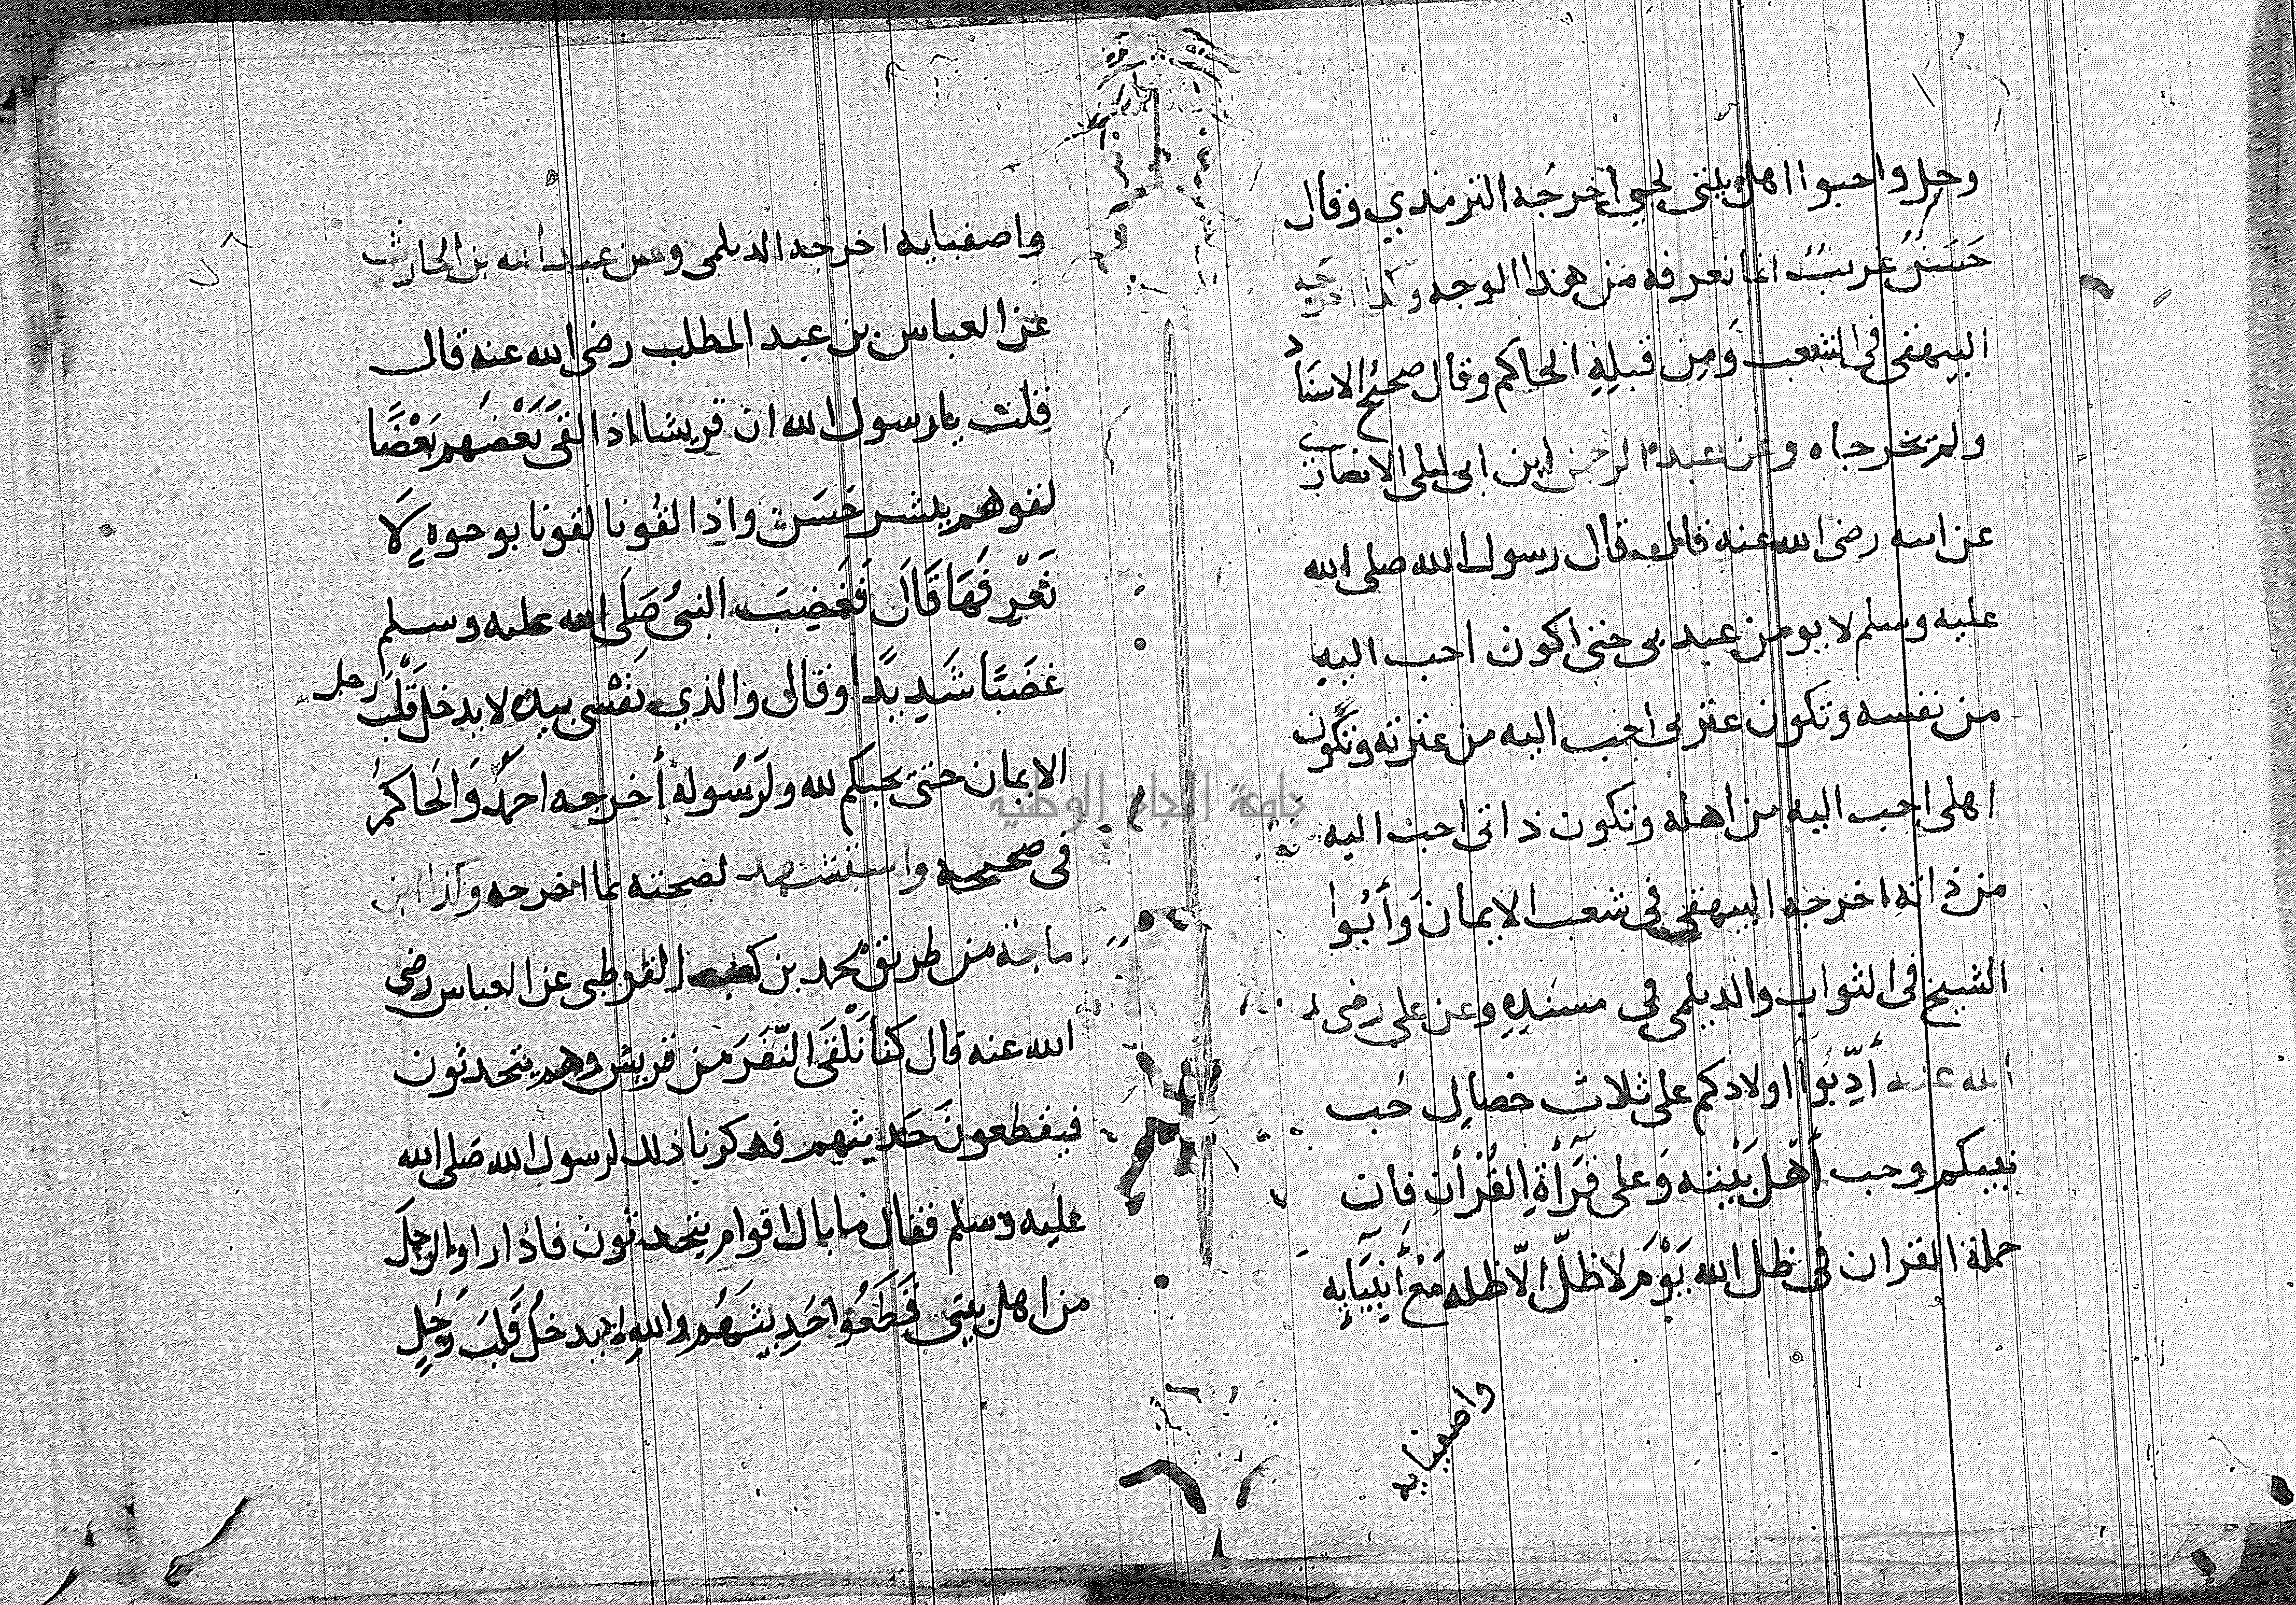 وجل واحبوا اهل بيتى لحبي اخرجه الترمذي وقال
حَسَنٌ غريبٌ انما نعرفه من هذا الوجه وكذا اخرجه
البيهقى فى الشعب وَمِن قبلِهِ الحاكم وقال صحيح الاسناد
ولم يخرجاه وعن عبد الرحمن ابن ابى ليلى الانصارى
عن ابيه رضى الله عنه قال قال رسول الله صلى الله
عليه وسلم لا يومن عبد بى حتى اكون احب اليه
من نفسه وتكون عترتى احب اليه من عترته وتكون
اهلى احب اليه من اهله وتكون ذاتى احب اليه
من ذاته اخرجه البيهقى فى شعب الايمان وَأبُوا
الشيخ فى الثواب والديلمى فى مسندِهِ وعن على رضى
الله عنه أَدِّبُوا اولادكم على ثلاث خصال حُب
نبيكم وحب أَهْل بَيْته وَعلى قِرَأَةِ القُرْأَن فان
حملة القران فى ظل الله يَوْمَ لا ظلّ الّا ظله مَعْ أَنبِيَايِهِ
واصفيايه
واصفيايه اخرجه الديلمى وعن عبد الله بن الحارث
عن العباس بن عبد المطلب رضى الله عنه قال
قلت يا رسول الله ان قريشا اذا لقىَ بَعْضُهم بَعْضًا
لقوهم ببشر حَسَن واذا لقُونا لقونا بوجوهٍ لَا
نَعْرِفُهَا قَالَ فَغَضِبَ النبىُ صَلَى الله عليه وسلم
غضَبًا شَدِيدًا وقال والذي نَفْسى بيده لا يدخل قَلْبَ رجل
الايمان حتى يحبكم لله ولرَسُوله أخرجه احمدُ وَالحَاكمُ
فى صحيحه واستشهد لصحته بما اخرجه وكذا ابن
ماجة من طريق محمد بن كعب القرظى عن العباس رضى
الله عنه قال كنا نَلْقَى النّفَرَ من قريش وهم يتحدثون
فيقطعونَ حَديثهم فذكرنا ذلك لرسول الله صَلى الله
عليه وسلم فقال ما بال اقوام يتحدثون فاذا راوا الرجل
من اهل بيتى قَطَعُوا حَدِيثَهُم والله لا يدخلُ قَلبَ رَجُلٍ
جامعة النجاح الوطنية